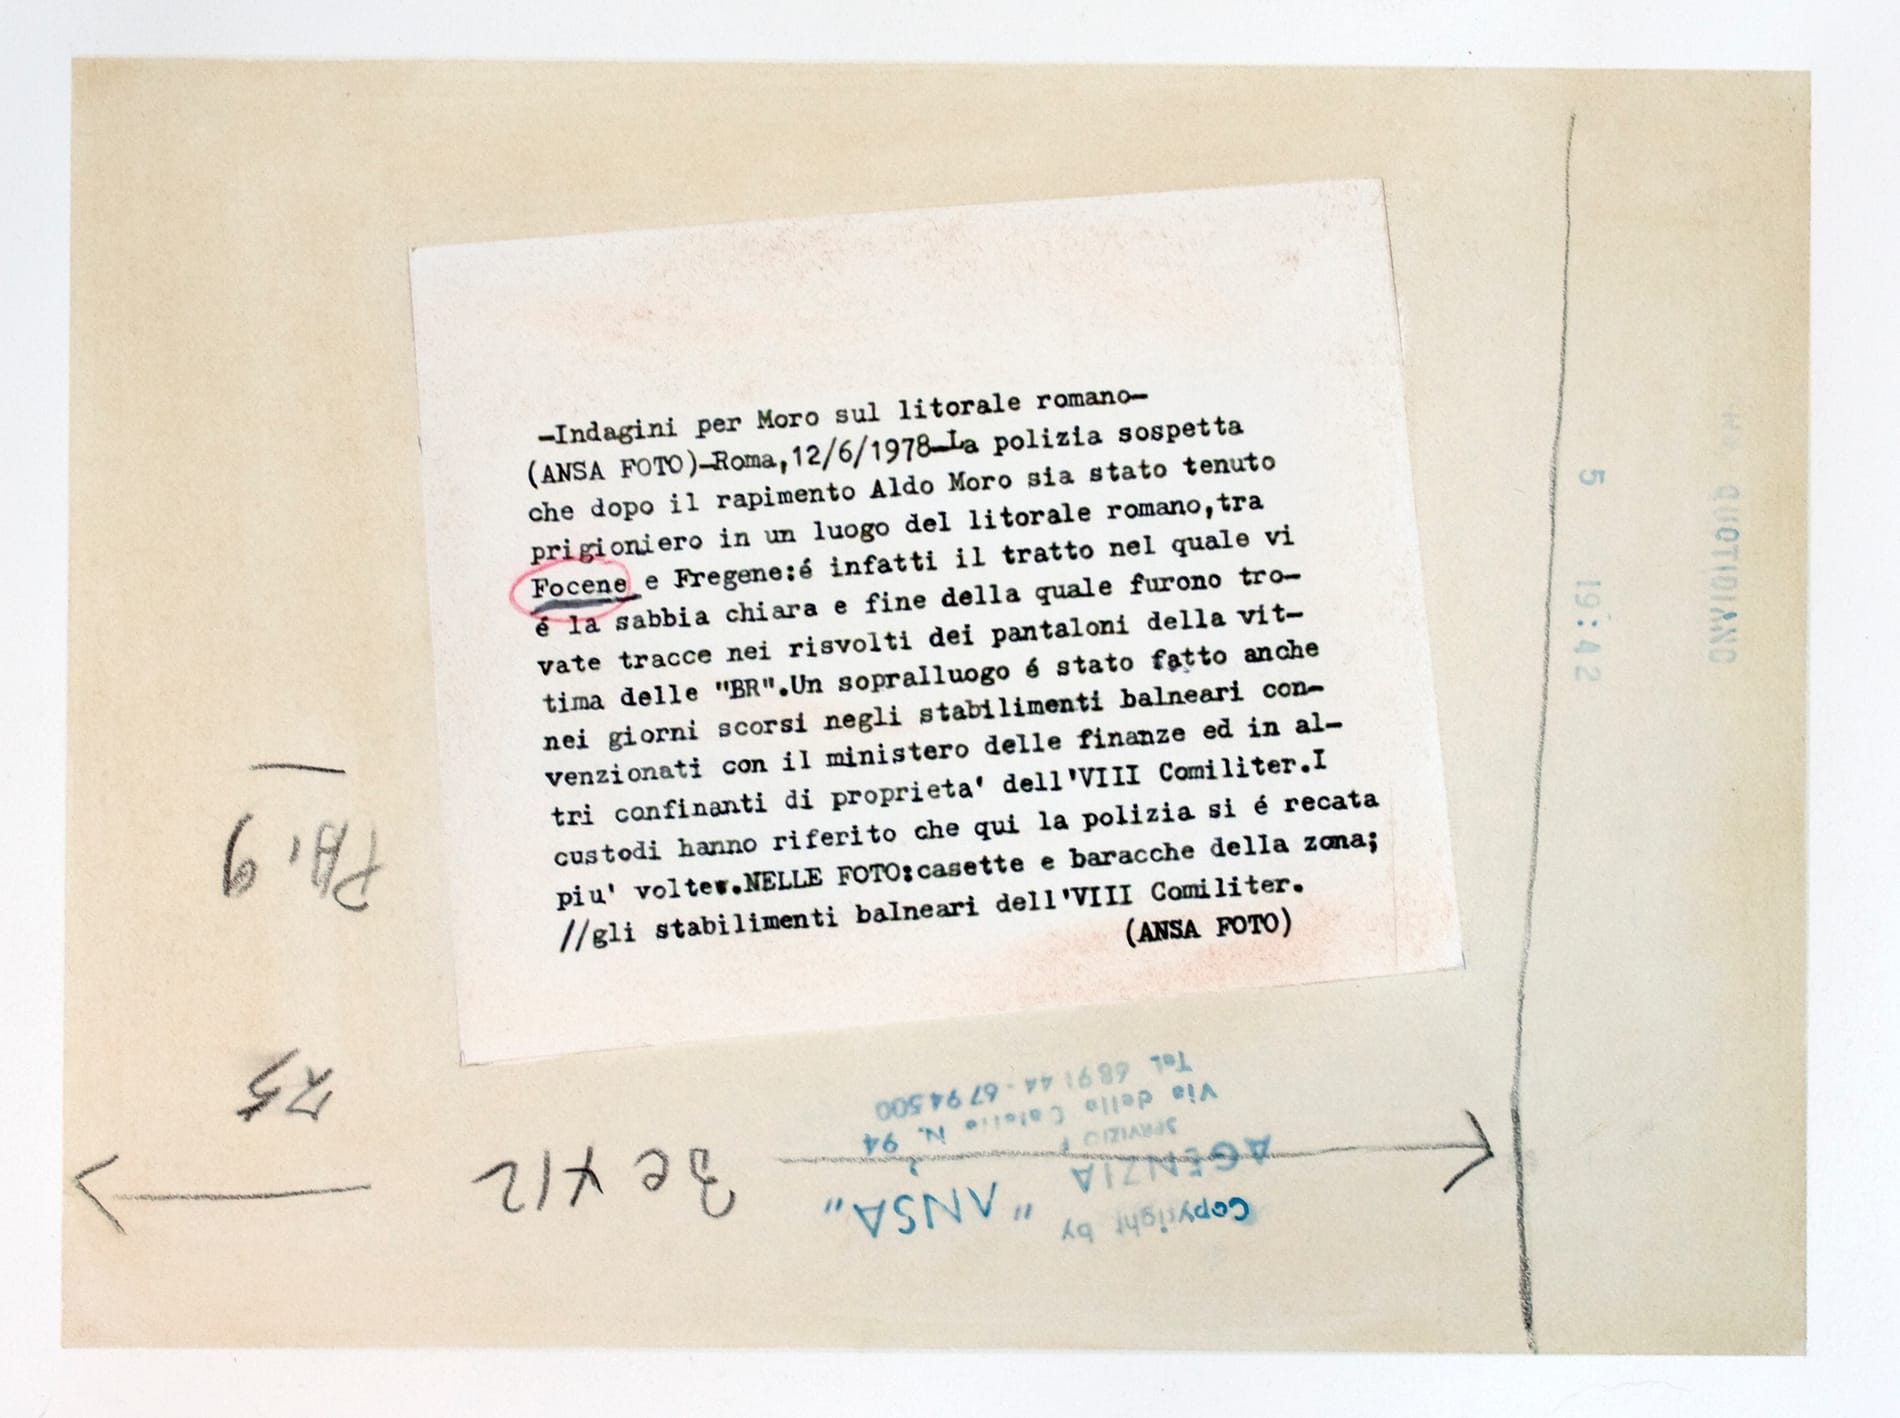 -Indagini per Moro sul litorale romano-
(ANSA FOTO)-Roma,12/6/1978-La polizia sospetta
che dopo il rapimento Aldo Moro sia stato tenuto
prigioniero in un luogo del litorale romano,tra
Focene e Fregene:é infatti il tratto nel quale vi
é la sabbia chiara e fine della quale furono tro-
vate tracce nei risvolti dei pantaloni della vit-
tima delle "BR".Un sopralluogo é stato fatto anche
nei giorni scorsi negli stabilimenti balneari con-
venzionati con il ministero delle finanze ed in al-
tri confinanti di proprieta' dell'VIII Comiliter.I
custodi hanno riferito che qui la polizia si é recata
piu' volte.NELLE FOTO:casette e baracche della zona;
//gli stabilimenti balneari dell'VIII Comiliter.
(ANSA FOTO)
5 19:42
QUOTIDIANO
Copyright by "ANSA"
AGENZIA
SERVIZIO
Via della N. 94
Tel. 689144-6794500